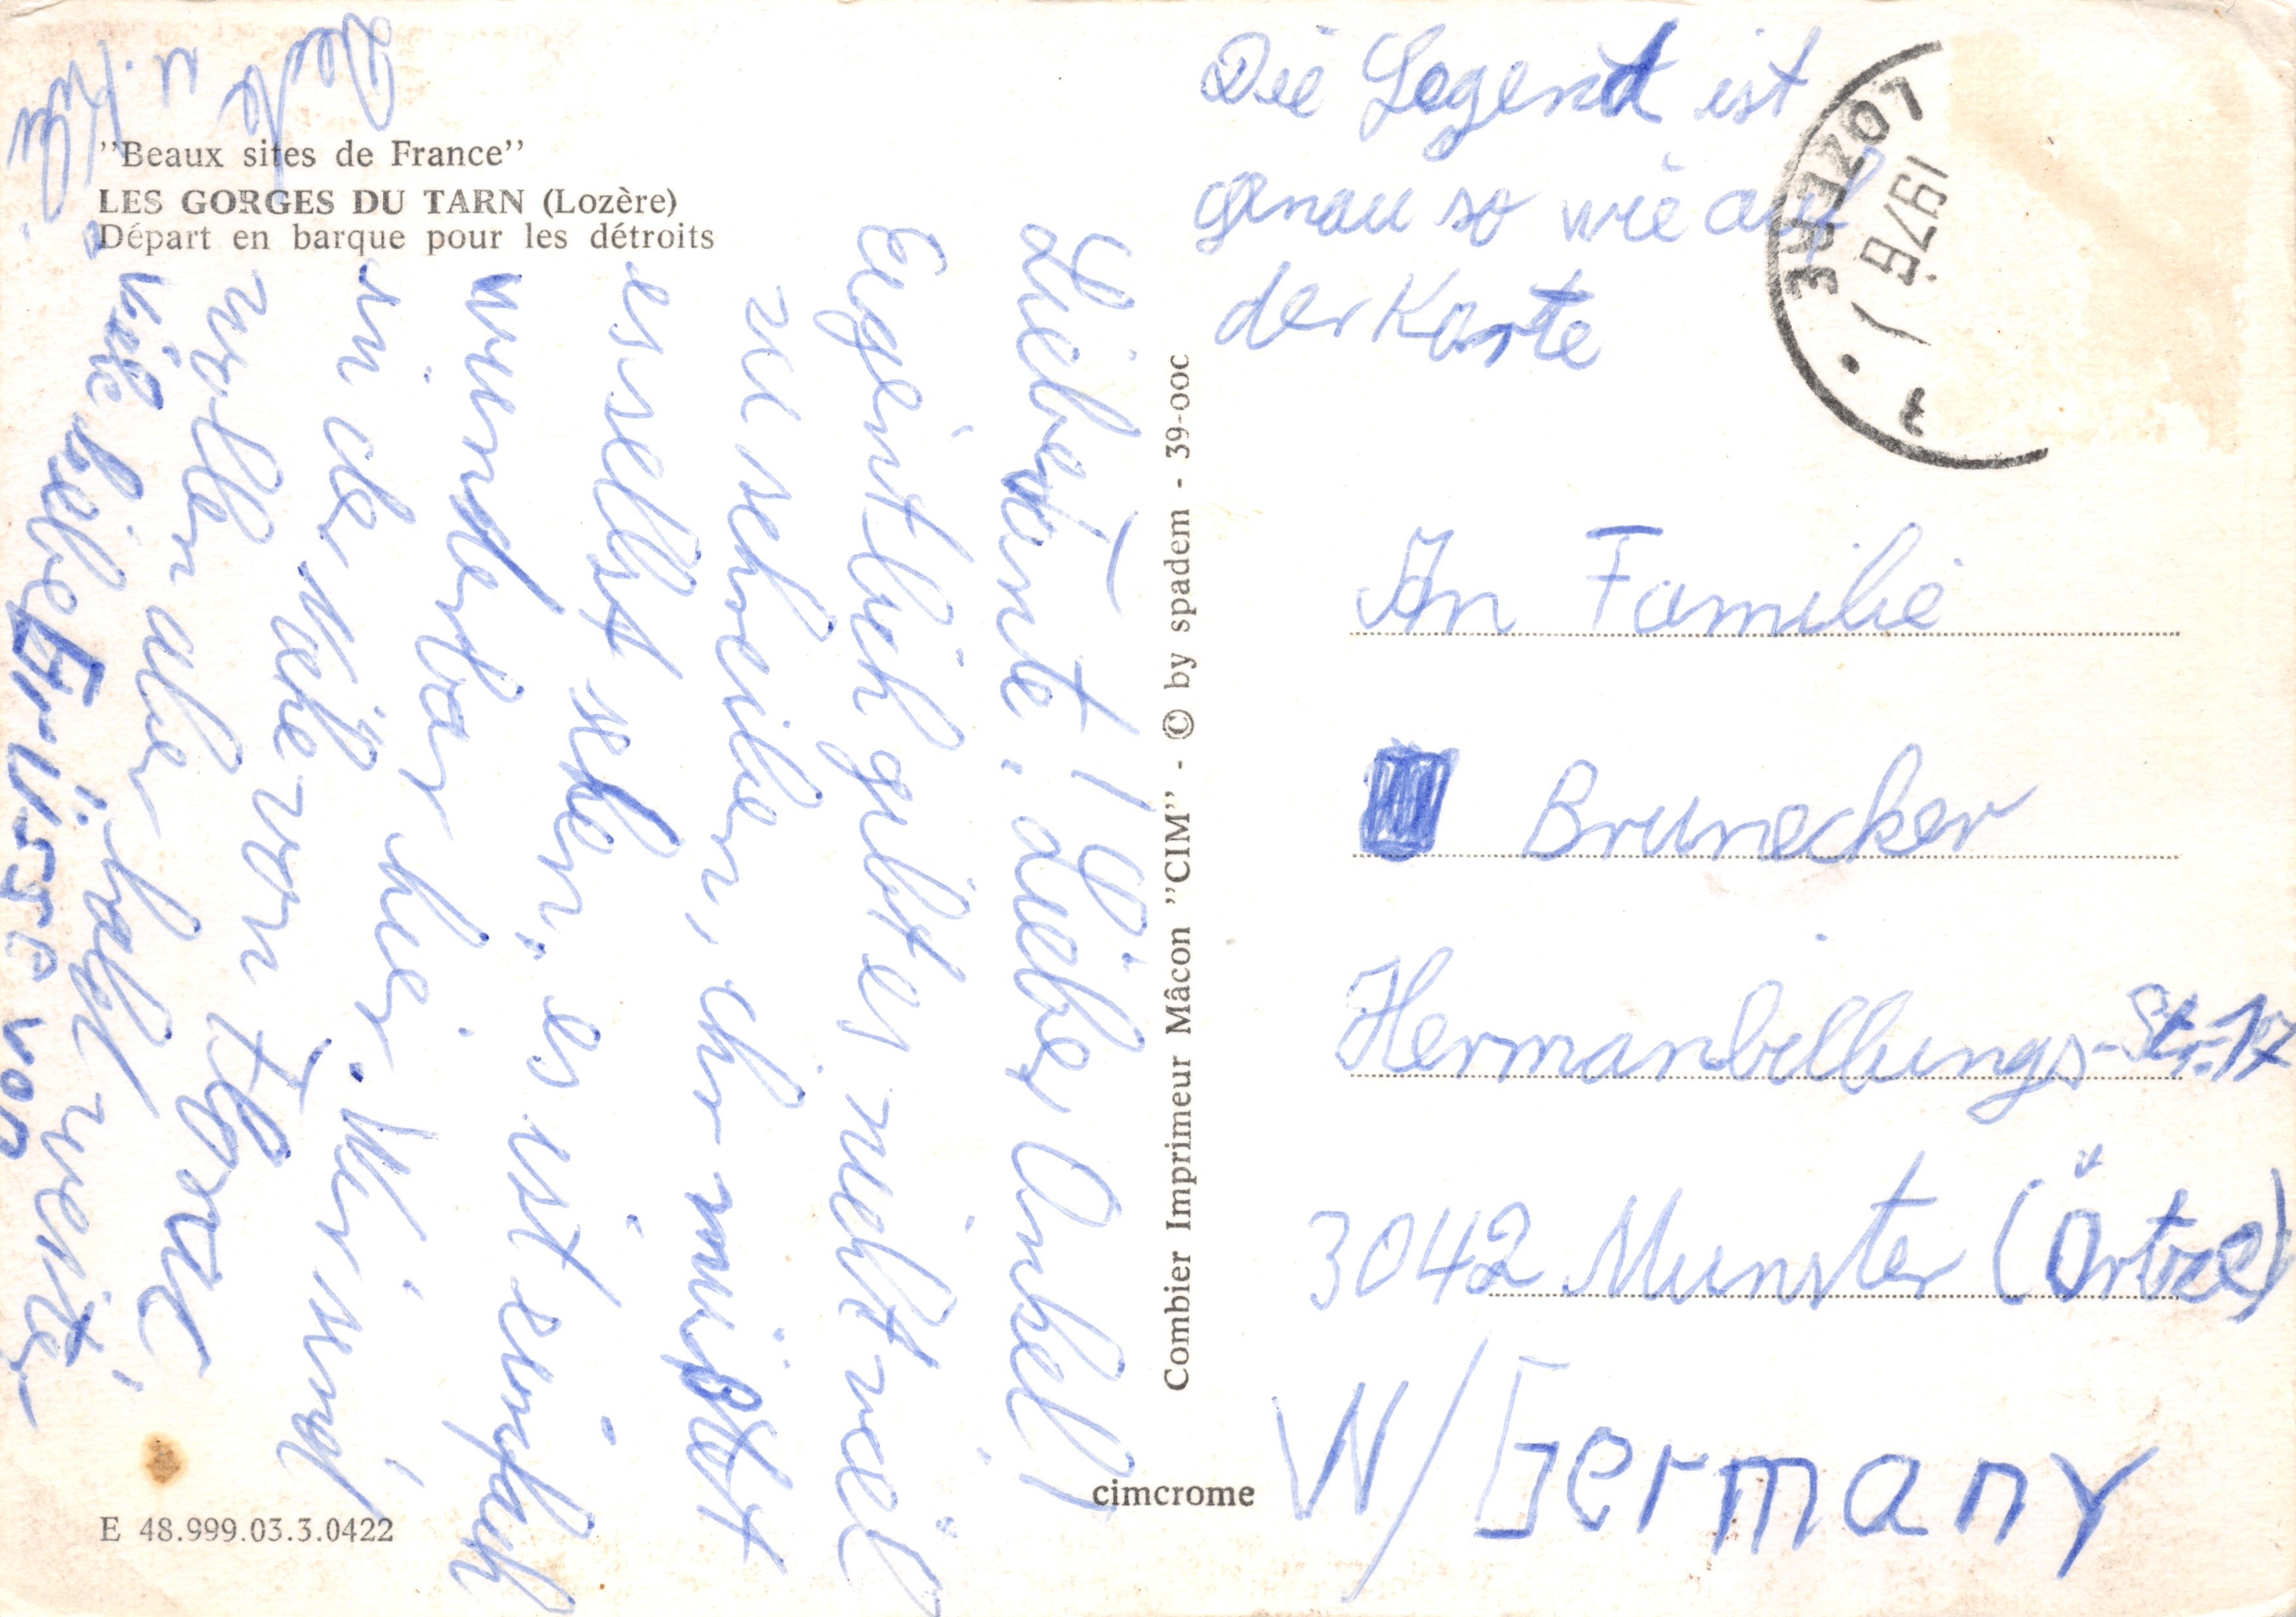 "Beaux sites de France"
LES GORGES DU TARN (Lozère)
Départ en barque pour les détroits
Liebe Tante, Lieber Onkel!
Eigentlich gibt es nicht viel
zu schreiben, ihr müßtet
es selbst sehen, es ist einfach
wunderbar hier. Wir sind
in der Nähe von
wollen aber bald weiter
viele liebe Grüsse von
u.
Combier Imprimeur Mâcon "CIM" - © by spadem - 39-00c
cimcrome
E 48.999.03.3.0422
Die Gegend ist
genau so wie auf
der Karte
LOZERE
1976
An Familie
Brunecker
Hermanbillungs-Str. 17
3042 Munster (Örtze)
W/Germany